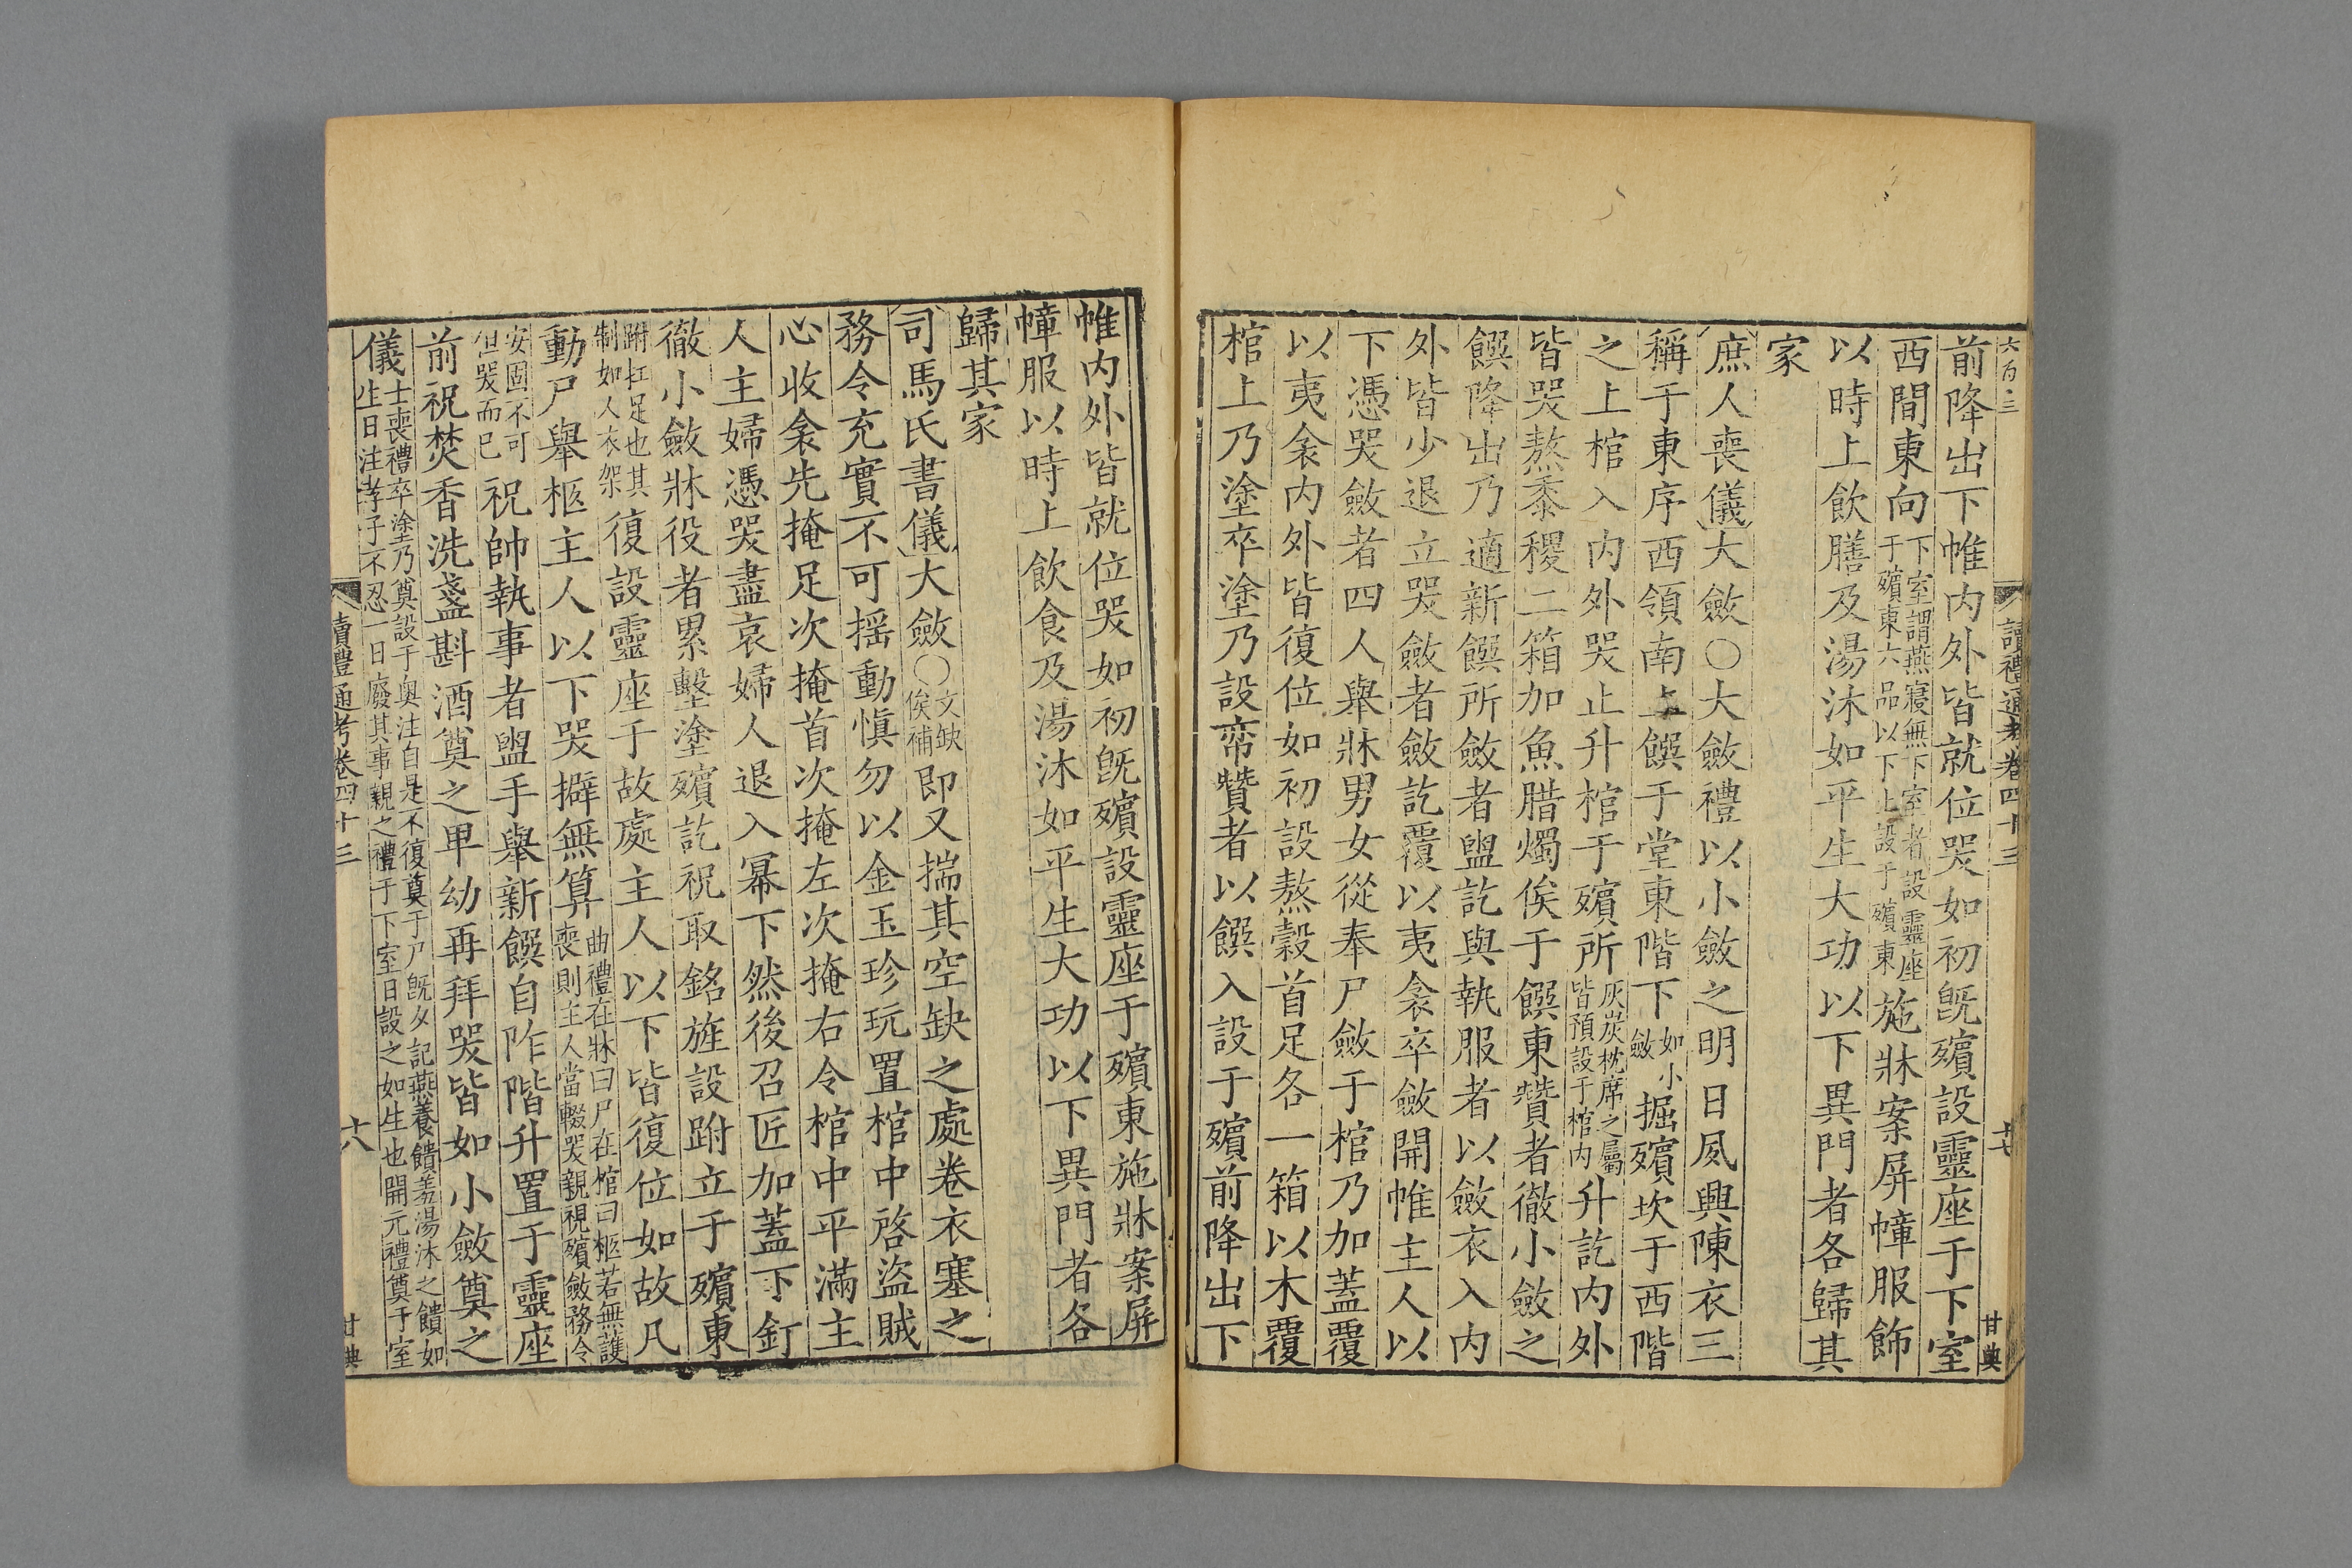 六百三
讀禮通考卷四十三
十七
甘典
前降出下帷內外皆就位哭如初旣殯設靈座于下室
西間東向下室謂燕寢無下室者設靈座于殯東六品以下止設于殯東施牀案屏幛服飾
以時上飲膳及湯沐如平生大功以下異門者各歸其
家
庶人喪儀大斂○大斂禮以小斂之明日夙興陳衣三
稱于東序西領南上饌于堂東階下如小斂掘殯坎于西階
之上棺入內外哭止升棺于殯所灰炭枕席之屬皆預設于棺內升訖內外
皆哭熬黍稷二箱加魚腊燭俟于饌東贊者徹小斂之
饌降出乃適新饌所斂者盥訖與執服者以斂衣入內
外皆少退立哭斂者斂訖覆以夷衾卒斂開帷主人以
下憑哭斂者四人舉牀男女從奉尸斂于棺乃加蓋覆
以夷衾內外皆復位如初設熬穀首足各一箱以木覆
棺上乃塗卒塗乃設帟贊者以饌入設于殯前降出下
帷內外皆就位哭如初旣殯設靈座于殯東施牀案屏
幛服以時上飲食及湯沐如平生大功以下異門者各
歸其家
司馬氏書儀大斂○文缺俟補即又揣其空缺之處卷衣塞之
務令充實不可揺動愼勿以金玉珍玩置棺中啓盜賊
心收衾先掩足次掩首次掩左次掩右令棺中平滿主
人主婦憑哭盡哀婦人退入幕下然後召匠加蓋下釘
徹小斂牀役者累墼塗殯訖祝取銘旌設跗立于殯東
跗扛足也其制如人衣架復設靈座于故處主人以下皆復位如故凡
動尸舉柩主人以下哭擗無算曲禮在牀曰尸在棺曰柩若無護喪則主人當輟哭親視殯斂務令
安固不可但哭而已祝帥執事者盥手舉新饌自阼階升置于靈座
前祝焚香洗盞斟酒奠之卑幼再拜哭皆如小斂奠之
儀士喪禮卒塗乃奠設于奧注自是不復奠于尸旣夕記燕養饋羞湯沐之饋如生日注孝子不忍一日廢其事親之禮于下室日設之如生也開元禮奠于室
讀禮通考卷四十三
十八
甘典